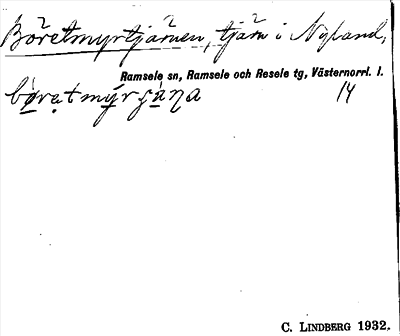 Böretmyrtjärnen, tjärn i Nyland,
Ramsele sn, Ramsele och Resele tg, Västernorrl. l.
14
C. LINDBERG 1932.